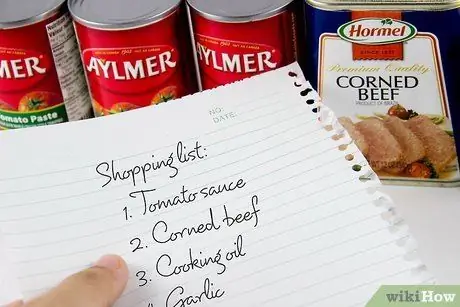 Hormel
SINCE 1891
Premium Quality
CORNED
BEEF
PRODUCT OF BRAZIL
AYLMER
AYLMER
AYLMER
Tomato Paste
NO:
DATE:
Shopping list:
1. Tomato sauce
2. Corned beef
3. Cooking oil
Garlic
wikiHow